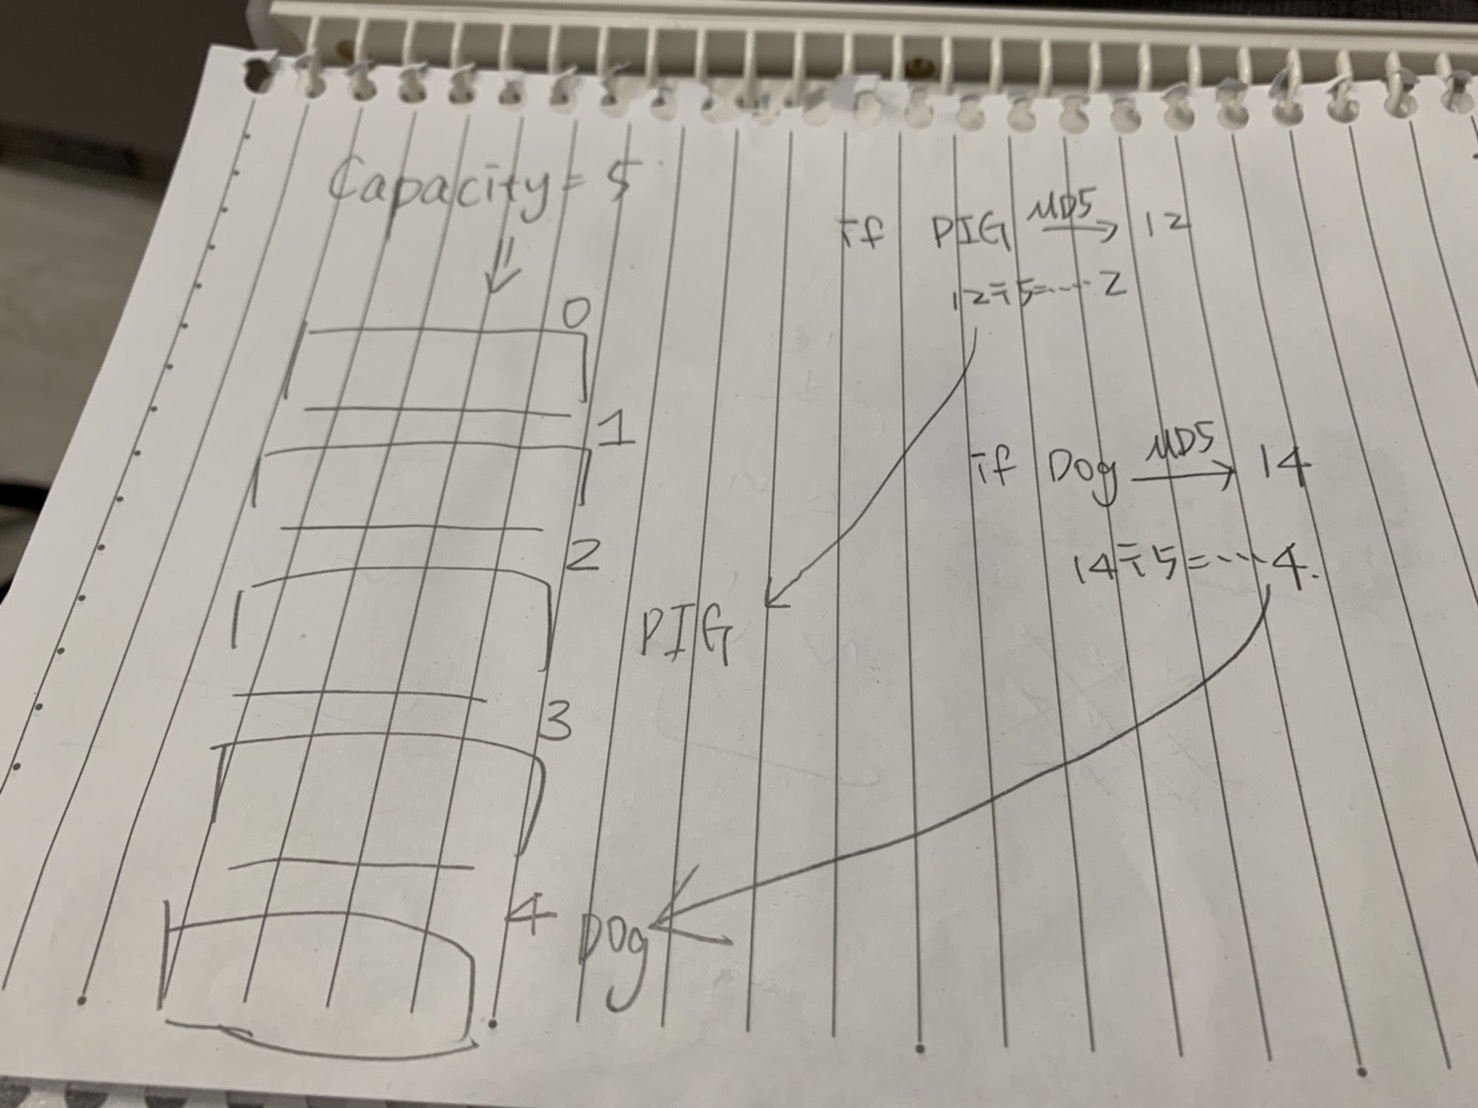 Capacity = 5
0
1
2
3
4
PIG
Dog
if PIG MD5 → 12
12÷5=⋯2
if Dog MD5 → 14
14÷5=⋯4.